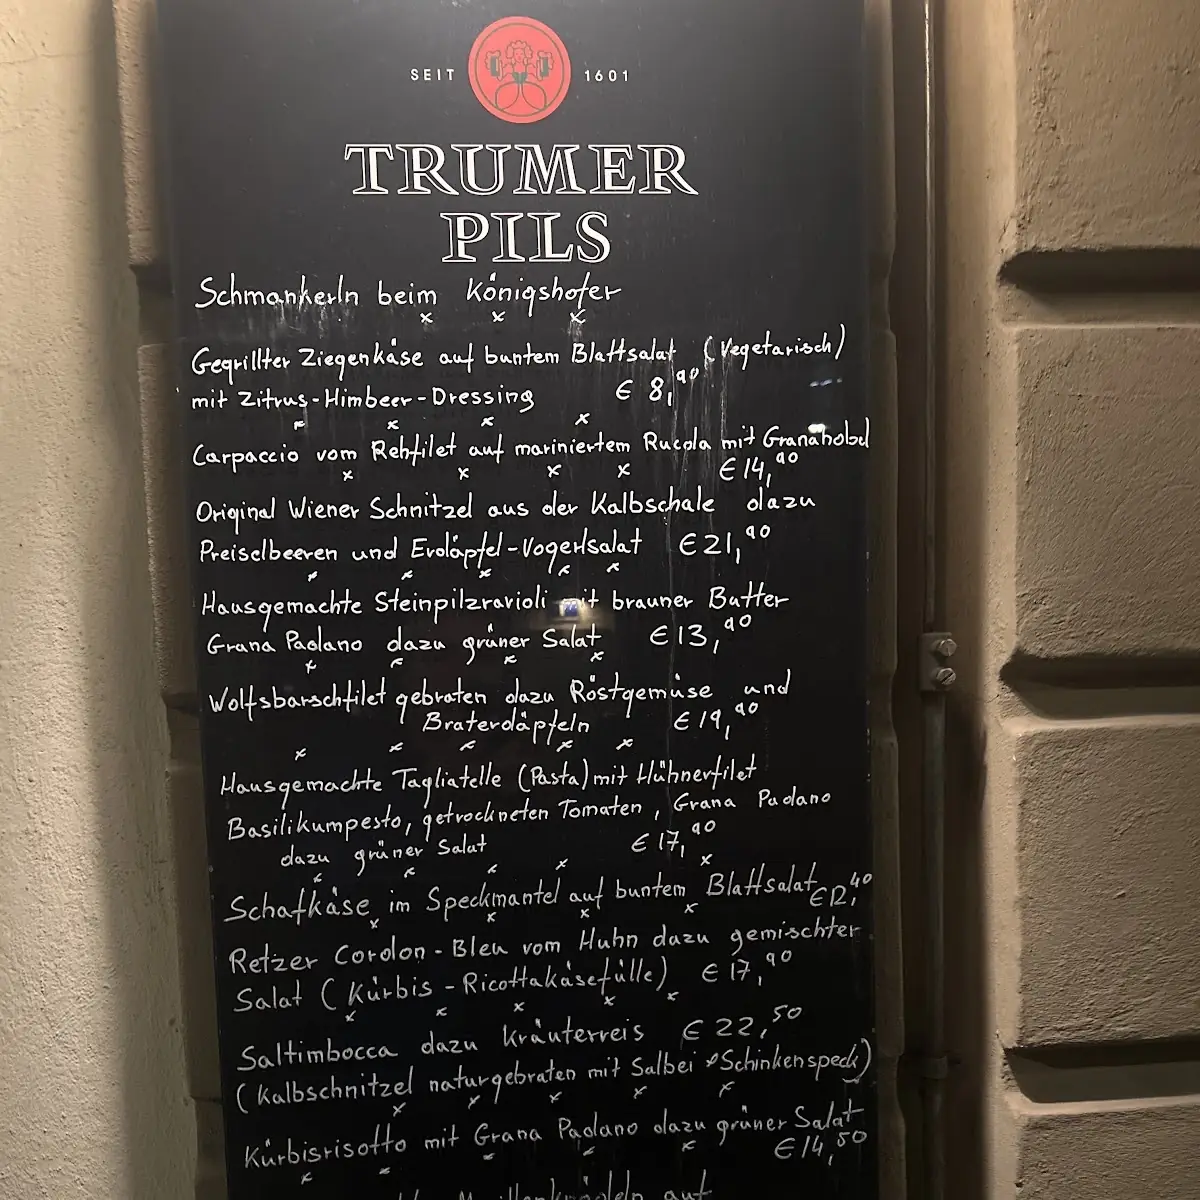 SEIT 1601
TRUMER
PILS
Schmankerln beim Königshofer
x x x
Gegrillter Ziegenkäse auf buntem Blattsalat (Vegetarisch)
mit Zitrus-Himbeer-Dressing € 8,90
x x x x
Carpaccio vom Rehfilet auf mariniertem Rucola mit Granahobel
€ 14,90
x x x x
Original Wiener Schnitzel aus der Kalbschale dazu
Preiselbeeren und Erdäpfel-Vogerlsalat € 21,90
x x x x x
Hausgemachte Steinpilzravioli mit brauner Butter
Grana Padano dazu grüner Salat € 13,90
x x x x
Wolfsbarschfilet gebraten dazu Röstgemüse und
Braterdäpfeln € 19,90
x x x x x
Hausgemachte Tagliatelle (Pasta) mit Hühnerfilet
Basilikumpesto, getrockneten Tomaten, Grana Padano
dazu grüner Salat € 17,90
x x x x x
Schafkäse im Speckmantel auf buntem Blattsalat € 12,40
x x x x
Retzer Cordon-Bleu vom Huhn dazu gemischter
Salat (Kürbis-Ricottakäsefülle) € 17,90
x x x x x
Saltimbocca dazu Kräuterreis € 22,50
(Kalbschnitzel naturgebraten mit Salbei & Schinkenspeck)
x x x x x
Kürbisrisotto mit Grana Padano dazu grüner Salat
€ 14,50
x x x x x
auf